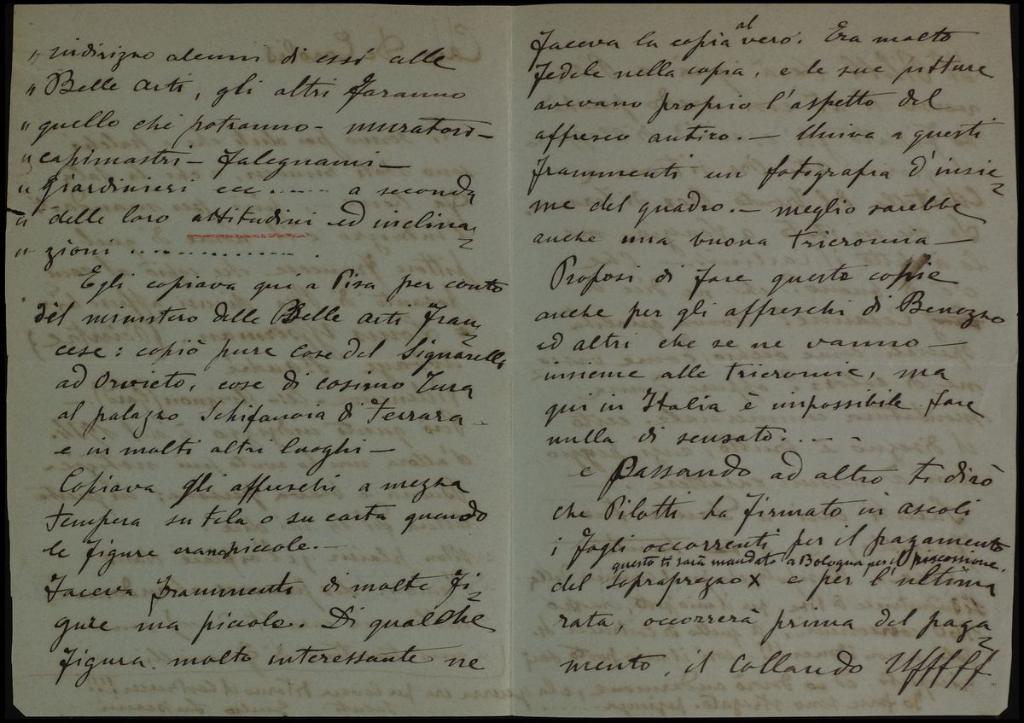 " indirizzo alcuni di essi alle
" Belle arti, gli altri faranno
" quello che potranno - muratori -
" capimastri - falegnami -
" giardinieri ecc ...... a seconda
" delle loro attitudini ed inclina=
" zioni ..............
Egli copiava qui a Pisa per conto
del ministero delle Belle arti fran=
cese: copiò pure cose del Signorelli
ad Orvieto, cose di cosimo Tura
al palazzo Schifanoia di Ferrara -
e in molti altri luoghi -
Copiava gli affreschi a mezza
tempera su tela o su carta quando
le figure erano piccole. -
Faceva frammenti di molte fi=
gure ma piccole. Di qualche
figura molto interessante ne
faceva la copia al vero. Era molto
fedele nella copia, e le sue pitture
avevano proprio l'aspetto del
affresco antico. - Univa a questi
frammenti un fotografia d'insie=
me del quadro. - meglio sarebbe
anche una buona tricromia -
Proposi di fare queste copie
anche per gli affreschi di Benozzo
ed altri che se ne vanno -
insieme alle tricromie, ma
qui in Italia è impossibile fare
nulla di sensato. ...-
e Passando ad altro ti dirò
che Pilotti ha firmato in ascoli
i fogli occorrenti per il pagamento
questo ti sarà mandato a Bologna per riscossione.
del sopraprezzo x e per l'ultima
rata, occorrerà prima del paga=
mento, il collaudo Uffffff